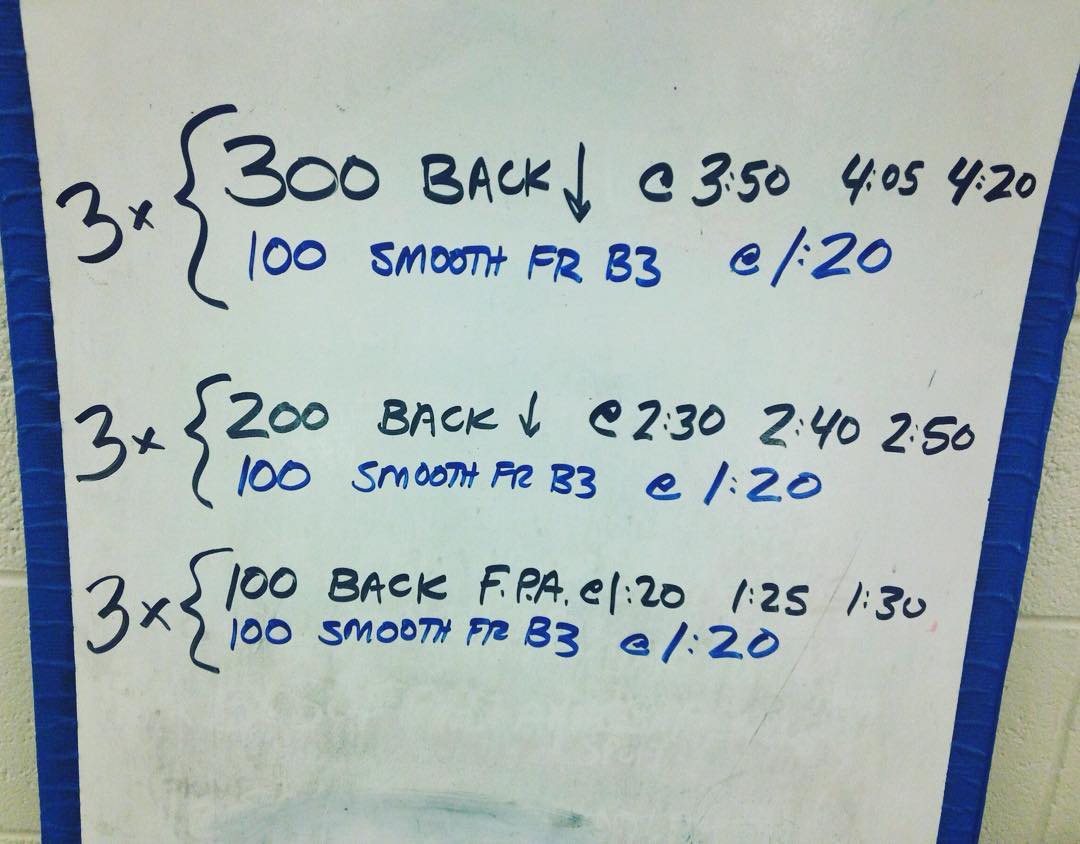 3x { 300 BACK ↓ @ 3:50 4:05 4:20
100 SMOOTH FR B3 @ 1:20
3x { 200 BACK ↓ @ 2:30 2:40 2:50
100 SMOOTH FR B3 @ 1:20
3x { 100 BACK F.P.A. @ 1:20 1:25 1:30
100 SMOOTH FR B3 @ 1:20